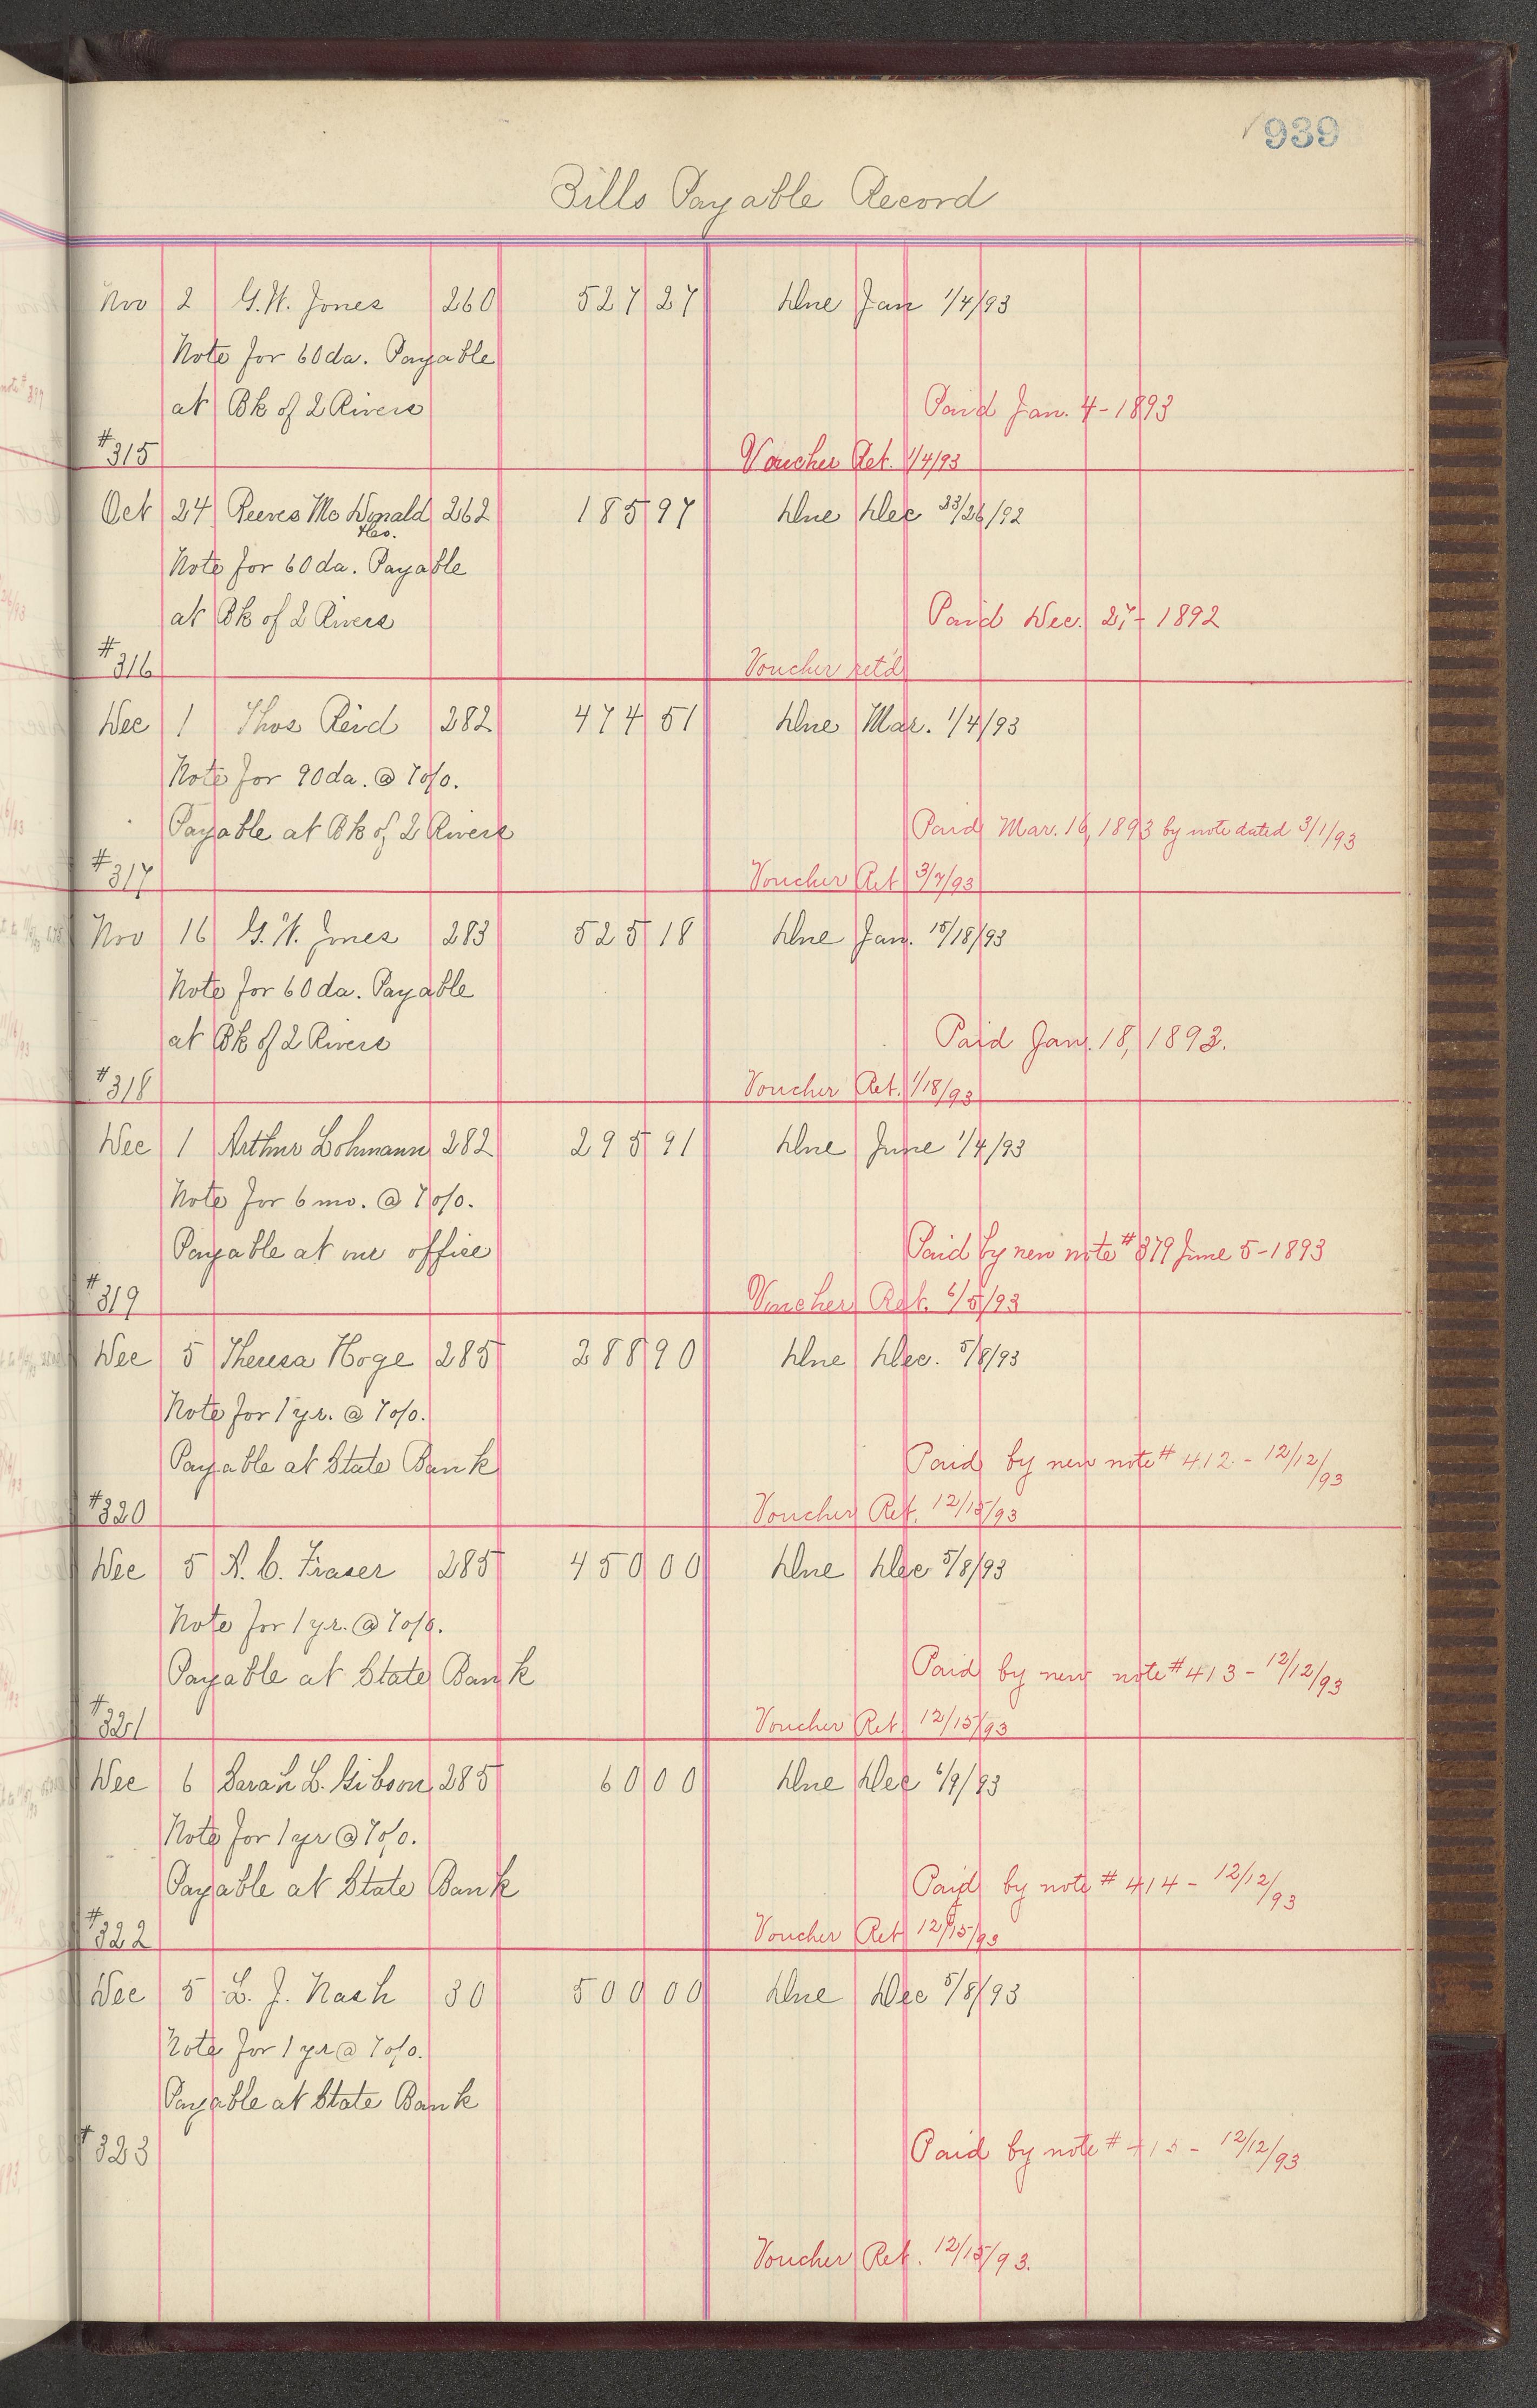 939
Bills Payable Record
Nov 2 G. W. Jones 260 527 27 Due Jan 1/4/93
Note for 60 da. Payable
at Bk of 2 Rivers Paid Jan. 4 - 1893
#315 Voucher Ret. 1/4/93
Oct 24 Reeves McDonald Co. 262 185 97 Due Dec 23/26/92
Note for 60 da. Payable
at Bk of 2 Rivers Paid Dec. 27 - 1892
#316 Voucher ret'd
Dec 1 Thos Reid 282 474 51 Due Mar. 1/4/93
Note for 90 da. @ 7 o/o.
Payable at Bk of 2 Rivers Paid Mar. 16, 1893 by note dated 3/1/93
#317 Voucher Ret 3/7/93
Nov 16 G. W. Jones 283 525 18 Due Jan. 15/18/93
Note for 60 da. Payable
at Bk of 2 Rivers Paid Jan. 18, 1893.
#318 Voucher Ret. 1/18/93
Dec 1 Arthur Lohmann 282 295 91 Due June 1/4/93
Note for 6 mo. @ 7 o/o.
Payable at our office Paid by new note #379 June 5 - 1893
#319 Voucher Ret. 6/5/93
Dec 5 Theresa Hoge 285 288 90 Due Dec. 5/8/93
Note for 1 yr. @ 7 o/o.
Payable at State Bank Paid by new note #412 - 12/12/93
#320 Voucher Ret. 12/15/93
Dec 5 A. C. Fraser 285 450 00 Due Dec 5/8/93
Note for 1 yr. @ 7 o/o.
Payable at State Bank Paid by new note #413 - 12/12/93
#321 Voucher Ret 12/15/93
Dec 6 Sarah L. Gibson 285 60 00 Due Dec 6/9/93
Note for 1 yr @ 7 o/o.
Payable at State Bank Paid by note #414 - 12/12/93
#322 Voucher Ret 12/15/93
Dec 5 L. J. Nash 30 500 00 Due Dec 5/8/93
Note for 1 yr @ 7 o/o.
Payable at State Bank
#323 Paid by note #415 - 12/12/93
Voucher Ret. 12/15/93.